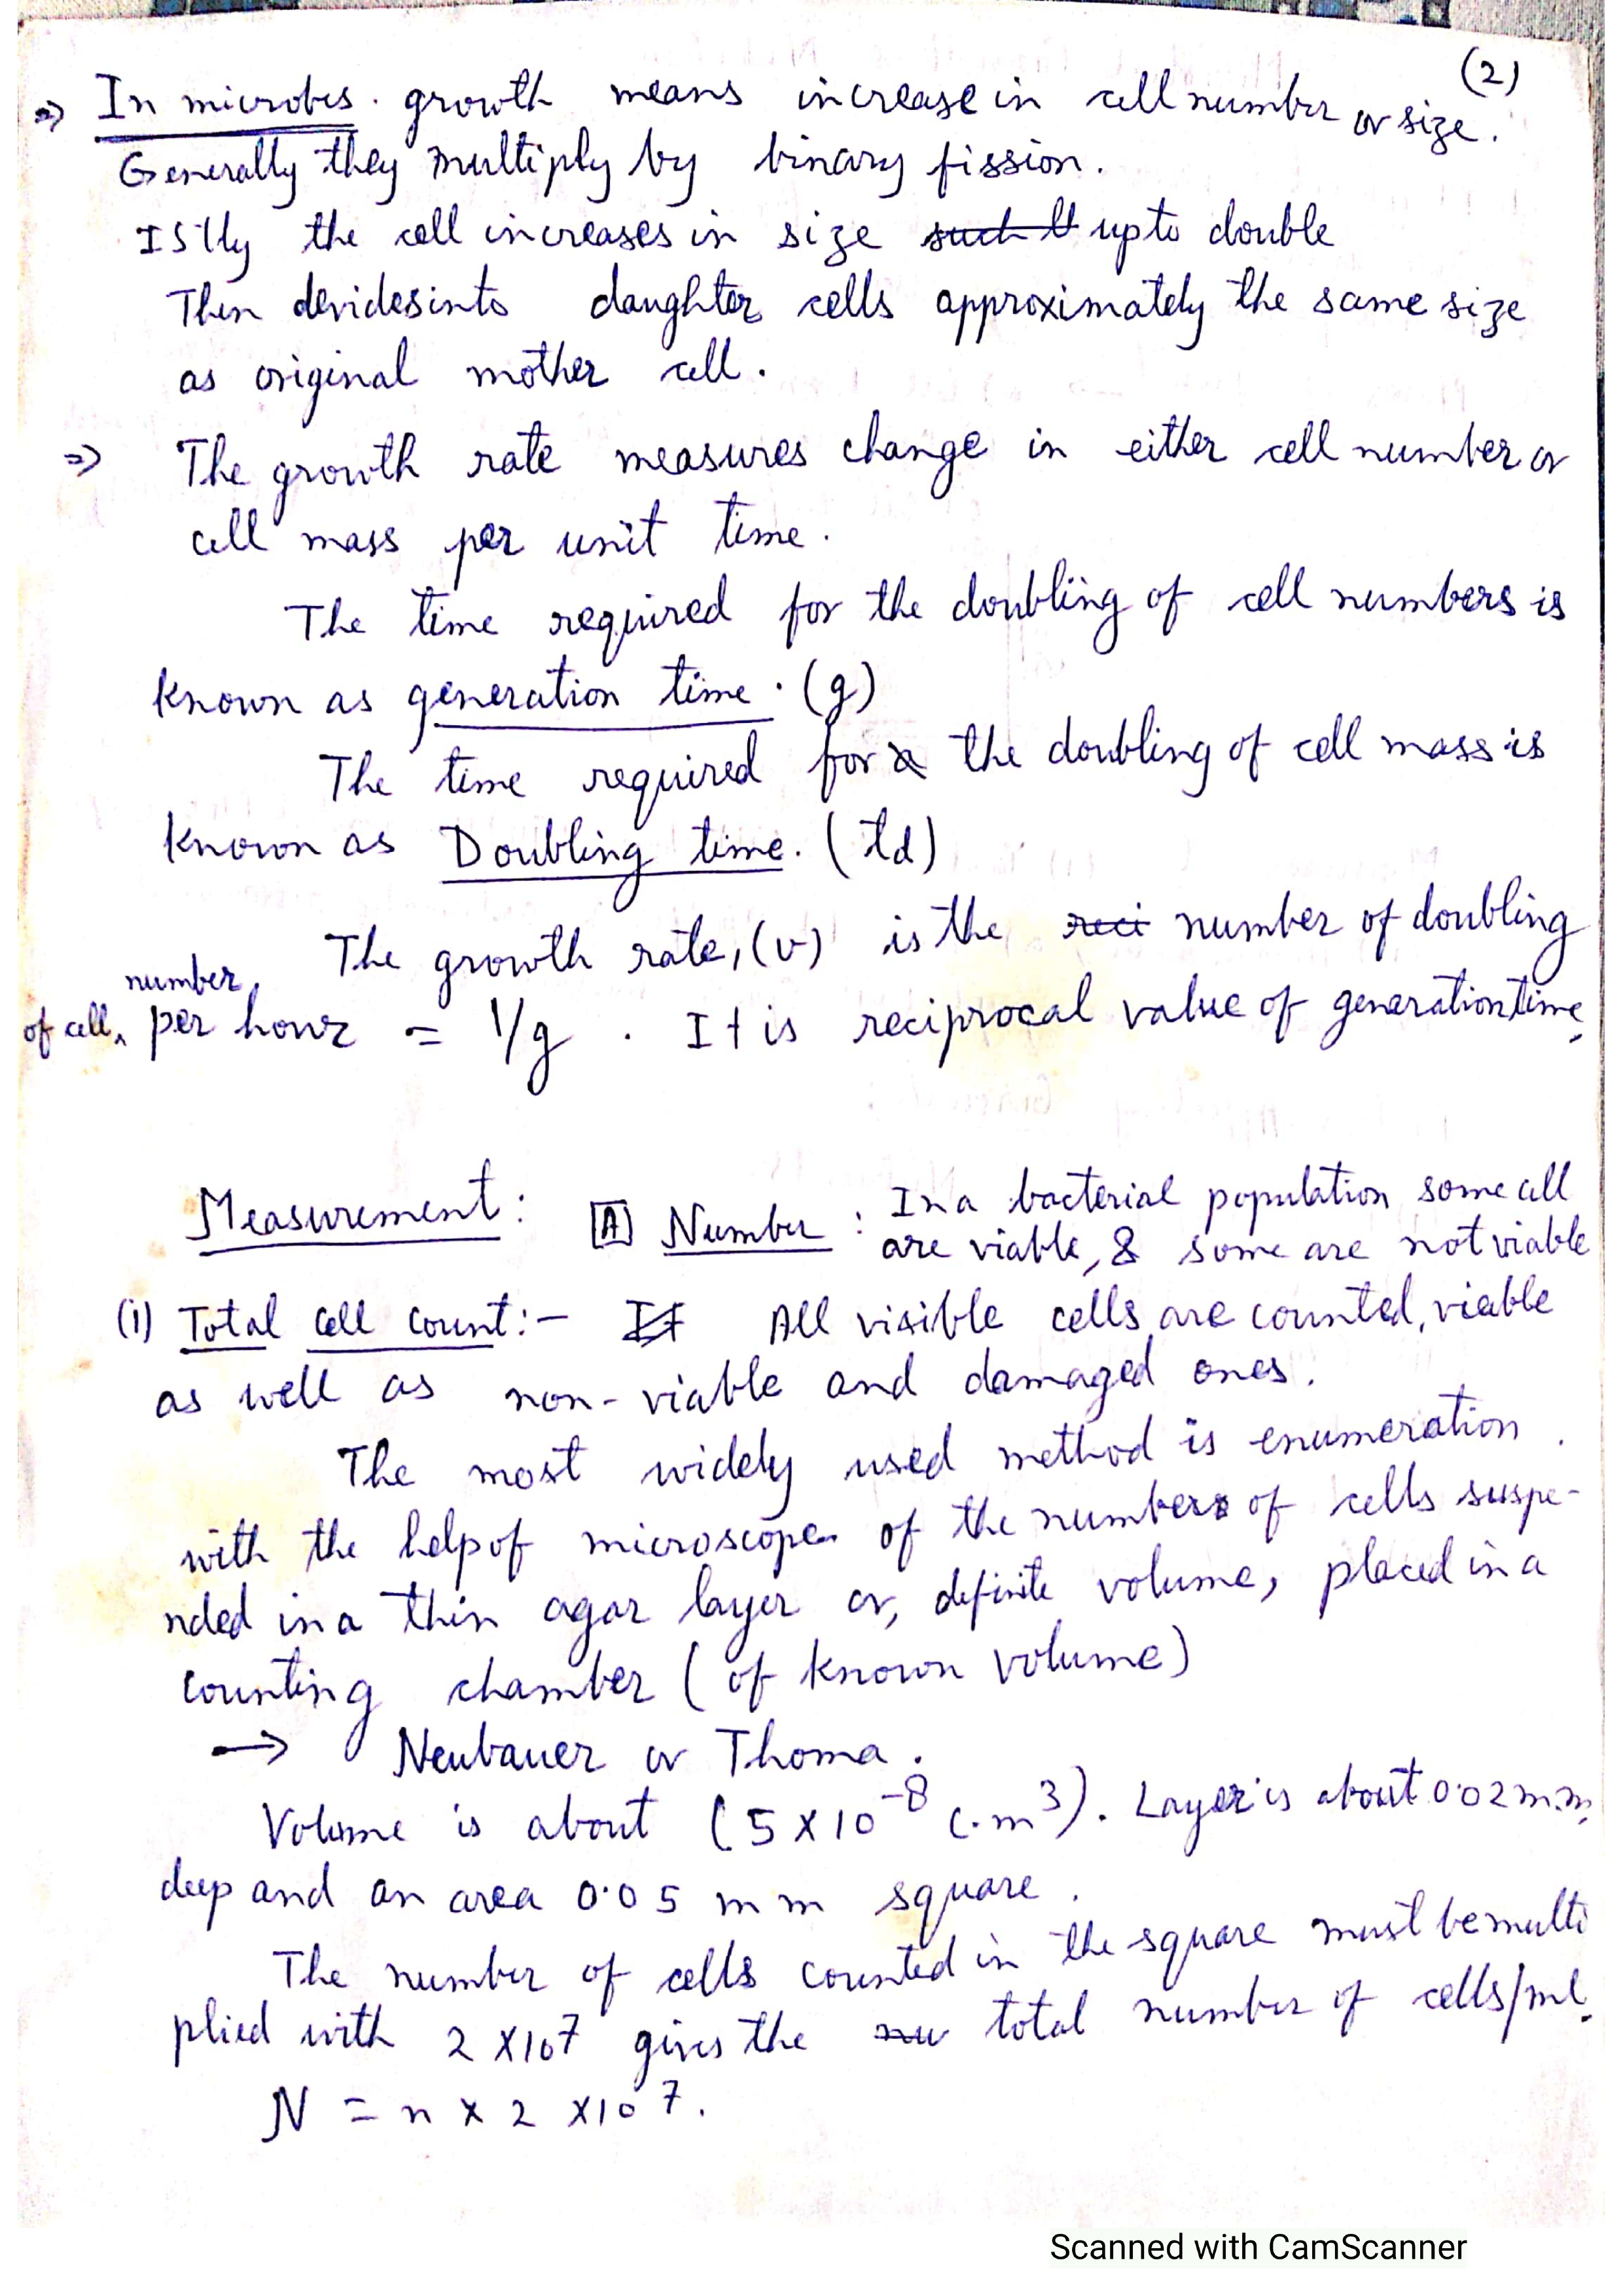 (2)
⇒ In microbes. growth means increase in cell number or size.
Generally they multiply by binary fission.
ISTly the cell increases in size such it upto double
Then devides into daughter cells approximately the same size
as original mother cell.
⇒ The growth rate measures change in either cell number or
cell mass per unit time.
The time required for the doubling of cell numbers is
known as generation time. (g)
The time required for the doubling of cell mass is
known as Doubling time. (td)
The growth rate, (v) is the reci number of doubling
number
of cell, per hour = 1/g . It is reciprocal value of generation time.
Measurement: [A] Number : In a bacterial population some cell
are viable, & some are not viable
(i) Total cell count:- It All visible cells are counted, viable
as well as non-viable and damaged ones.
The most widely used method is enumeration
with the help of microscope of the numbers of cells suspe-
nded in a thin agar layer or, definite volume, placed in a
counting chamber (of known volume)
→ Neubauer or Thoma.
Volume is about (5 x 10⁻⁸ c.m³). Layer is about 0.02 m.m.
deep and an area 0.05 mm square.
The number of cells counted in the square must be multi
plied with 2 x 10⁷ gives the nu total number of cells/ml.
N = n x 2 x 10⁷.
Scanned with CamScanner